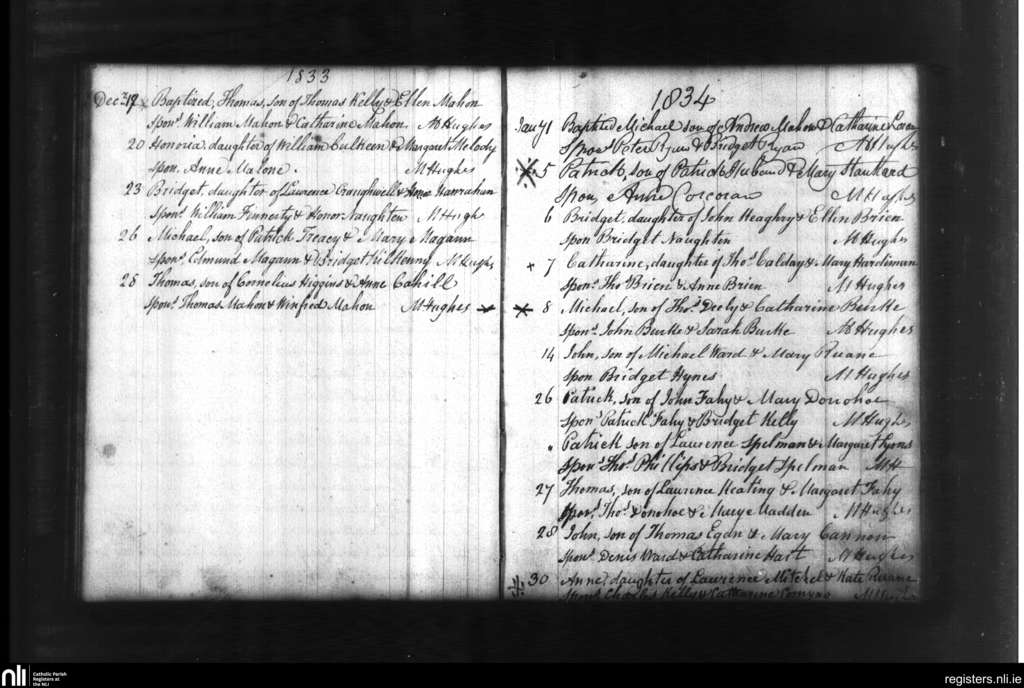 1833
Dec 19 Baptized, Thomas, son of Thomas Kelly & Ellen Mahon
Spons William Mahon & Catharine Mahon M Hughes
20 Honoria, daughter of William Culkeen & Margaret Melody
Spon. Anne Malone. M Hughes
23 Bridget, daughter of Lawrence Croughwell & Anne Hanrahan
Spons William Finnerty & Honor Naughten M Hugh
26 Michael, son of Patrick Treacy & Mary Magann
Spons Edmund Magann & Bridget Kilkenny M Hughs
28 Thomas, son of Cornelius Higgins & Anne Cahill
Spons Thomas Mahon & Winifred Mahon M Hughes
1834
Jany 1 Baptized Michael son of Andrew Mahon & Catharine
Spons Peter Ryan & Bridget Ryan M Hughes
5 Patrick, son of Patrick & Mary Hankard
Spon Anne Corcoran M Hughes
6 Bridget, daughter of John Heaghry & Ellen Brien
Spon Bridget Naughten M Hughes
+ 7 Catharine, daughter of Thos Calday & Mary Hardiman
Spons Tho Brien & Anne Brien M Hughes
8 Michael, son of Thos Deely & Catharine Burke
Spons John Burke & Sarah Burke M Hughes
14 John, son of Michael Ward & Mary Ruane
Spon Bridget Hynes M Hughes
26 Patrick, son of John Fahy & Mary Donohoe
Spons Patrick Fahy & Bridget Kelly M Hughes
Patrick son of Lawrence Spelman & Margaret Lyons
Spons Thos Phillips & Bridget Spelman MH
27 Thomas, son of Laurence Keating & Margaret Fahy
Spons Thos Donohoe & Mary Madden M Hughes
28 John, son of Thomas Egan & Mary Cannon
Spons Denis Ward & Catharine Hart M Hughes
30 Anne, daughter of Lawrence Mitchel & Kate Ruane
Spons Charles Kelly & Catharine M Hughes
nli
Catholic Parish
Registers at
the NLI
registers.nli.ie